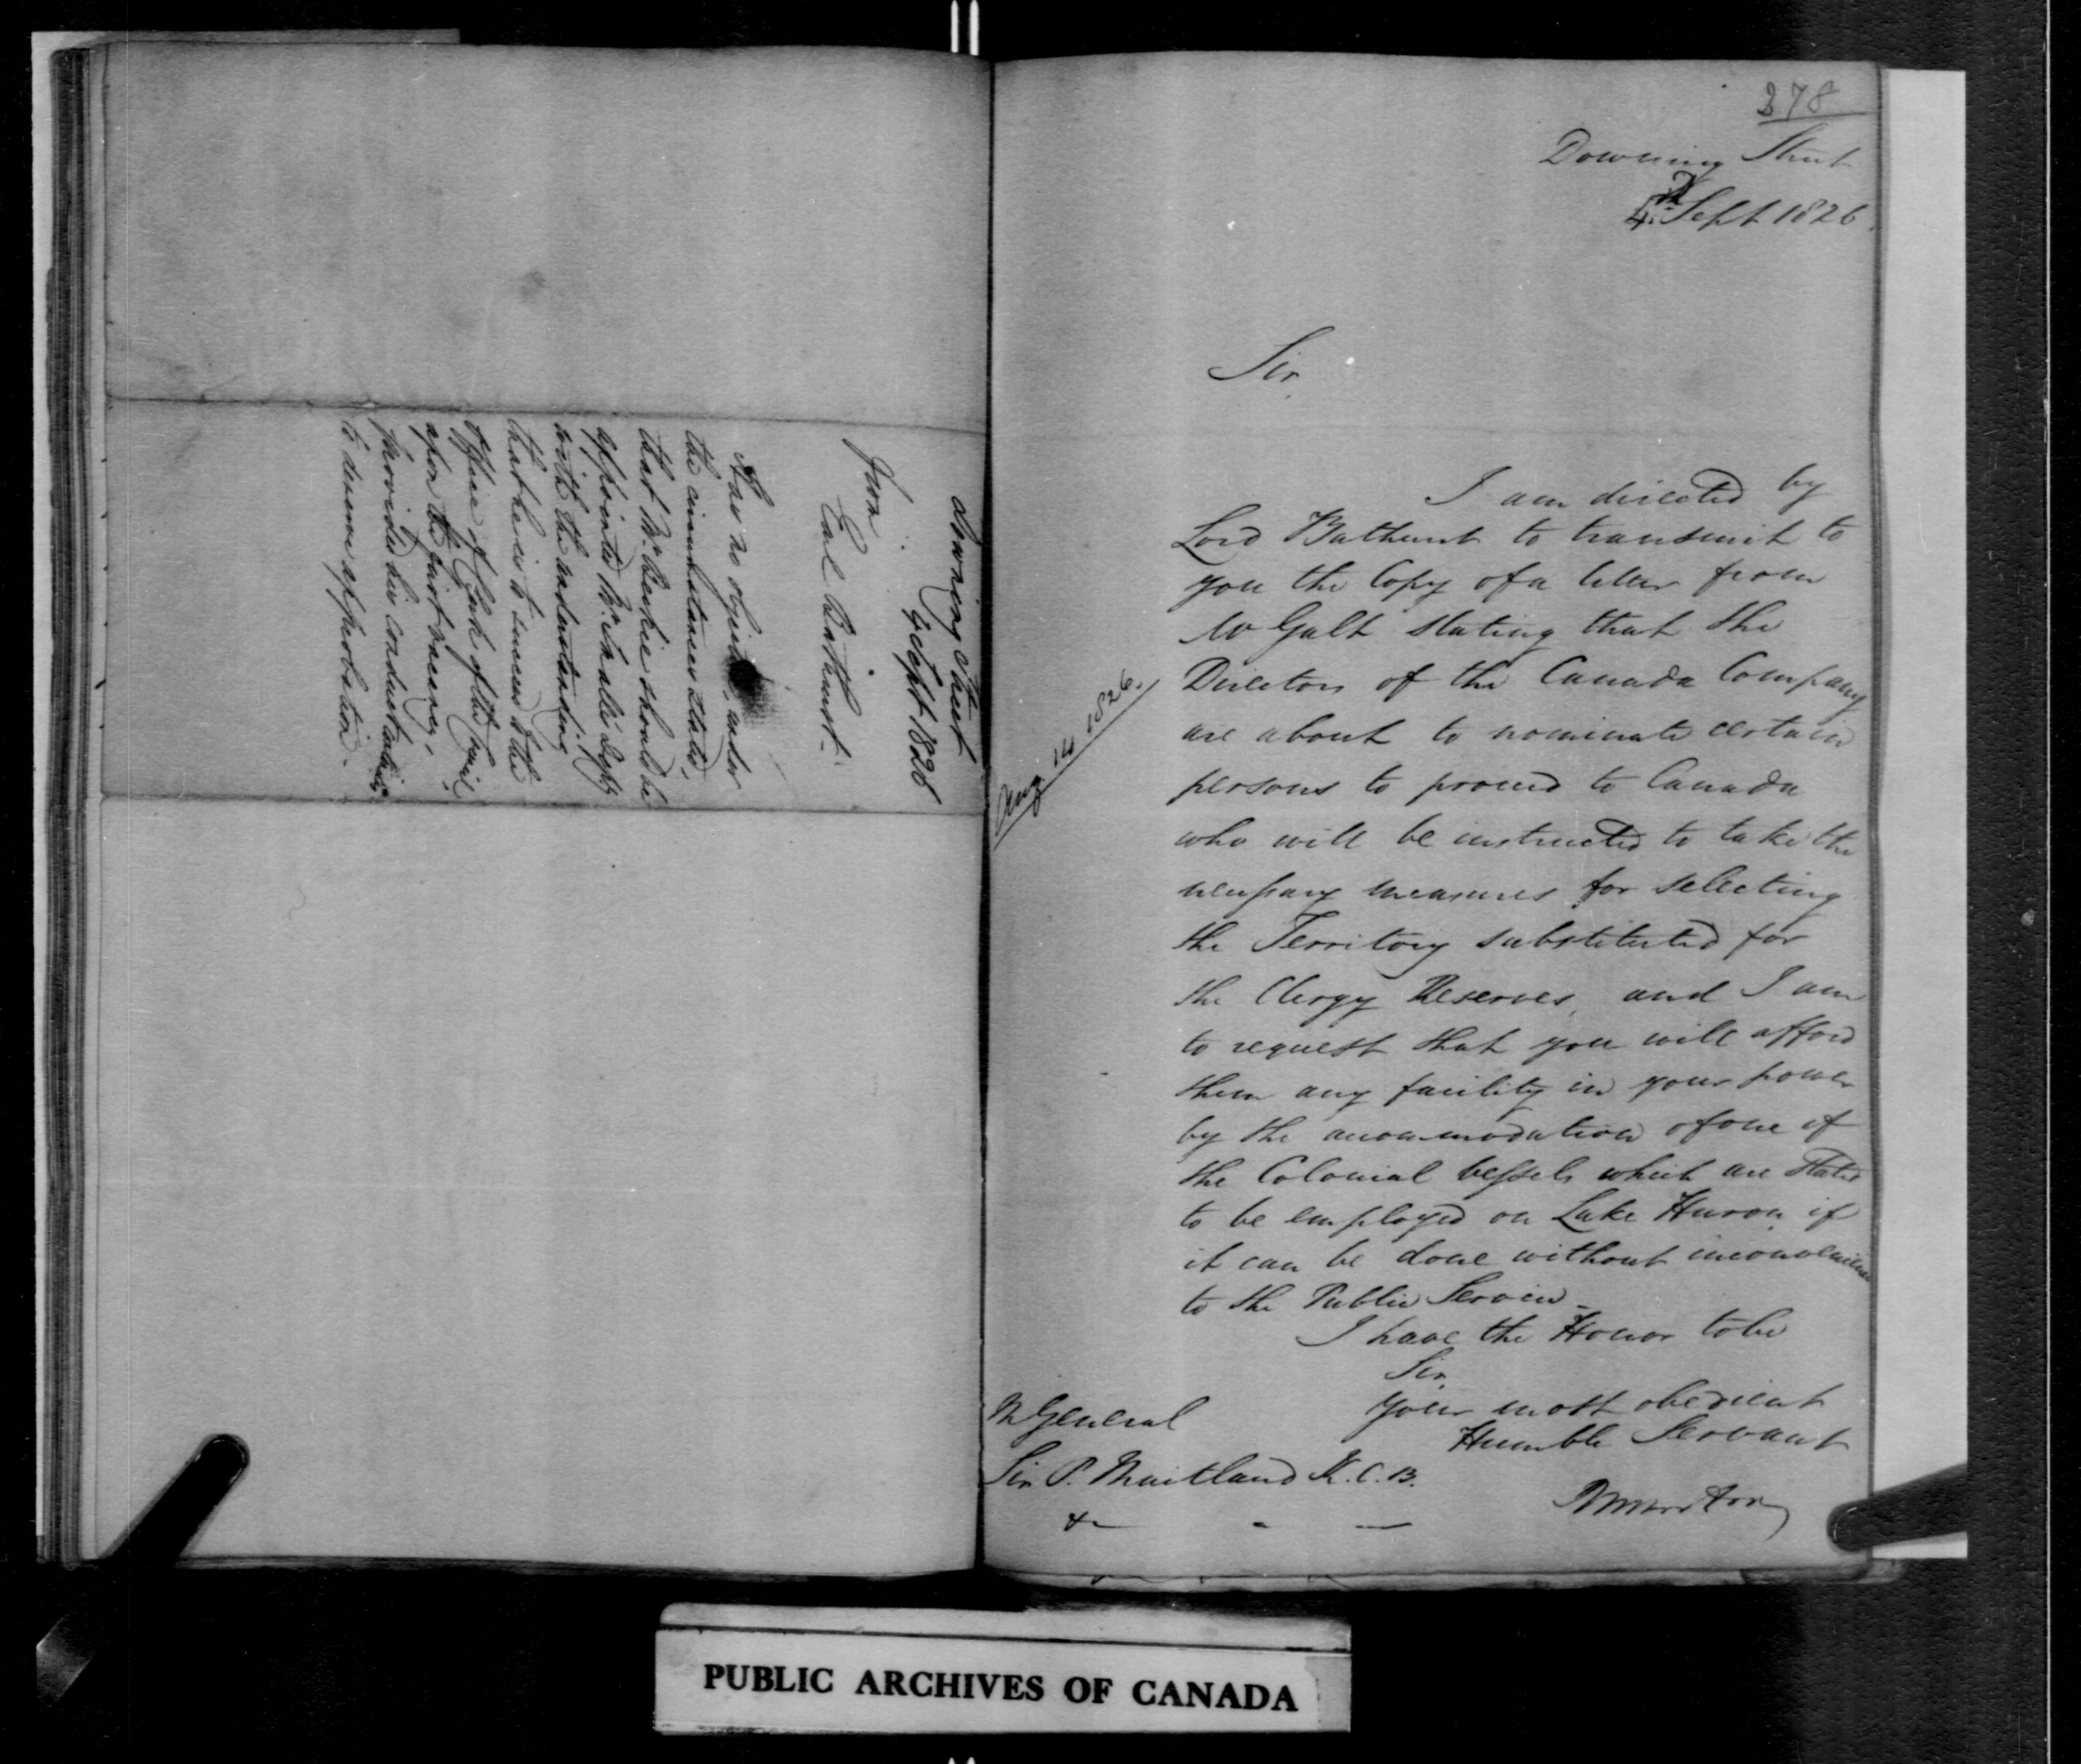 Downing Street
4 Sept 1826
From
Earl Bathurst.
Has no objection, under
the circumstances stated,
that Mr should be
appointed Mr Small's Depty
with the understanding
that he is to succeed to the
Office of Clerk of the Council
upon its first vacancy,
provided his conduct
to deserve approbation.
278
Downing Street
4th Sept 1826.
Sir,
I am directed by
Lord Bathurst to transmit to
you the Copy of a letter from
Mr Galt stating that the
Directors of the Canada Company
are about to nominate certain
persons to proceed to Canada
who will be instructed to take the
necessary measures for selecting
the Territory substituted for
the Clergy Reserves, and I am
to request that you will afford
them any facility in your power
by the accommodation of one of
the Colonial vessels which are stated
to be employed on Lake Huron, if
it can be done without inconvenience
to the Public Service.
I have the Honor to be
Sir,
Your most obedient
Humble Servant
Aug 14 1826.
M General
Sir P. Maitland K.C.B.
&c - -
PUBLIC ARCHIVES OF CANADA